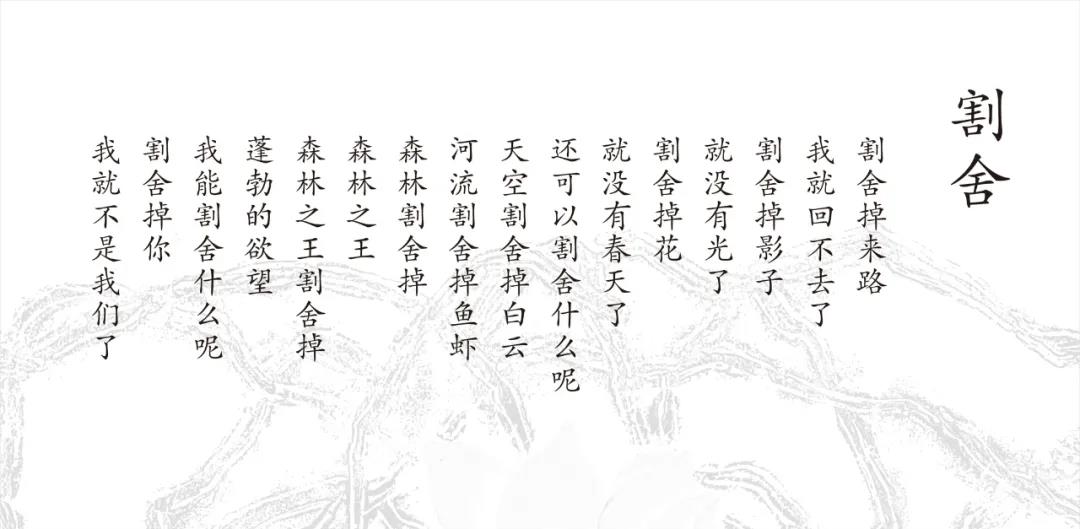 割舍
割舍掉来路
我就回不去了
割舍掉影子
就没有光了
割舍掉花
就没有春天了
还可以割舍什么呢
天空割舍掉白云
河流割舍掉鱼虾
森林割舍掉
森林之王
森林之王割舍掉
蓬勃的欲望
我能割舍什么呢
割舍掉你
我就不是我们了